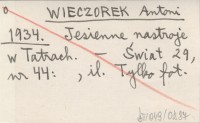 WIECZOREK Antoni
1934. Jesienne nastroje
w Tatrach. – Świat 29,
nr 44: , il. Tylko fot.